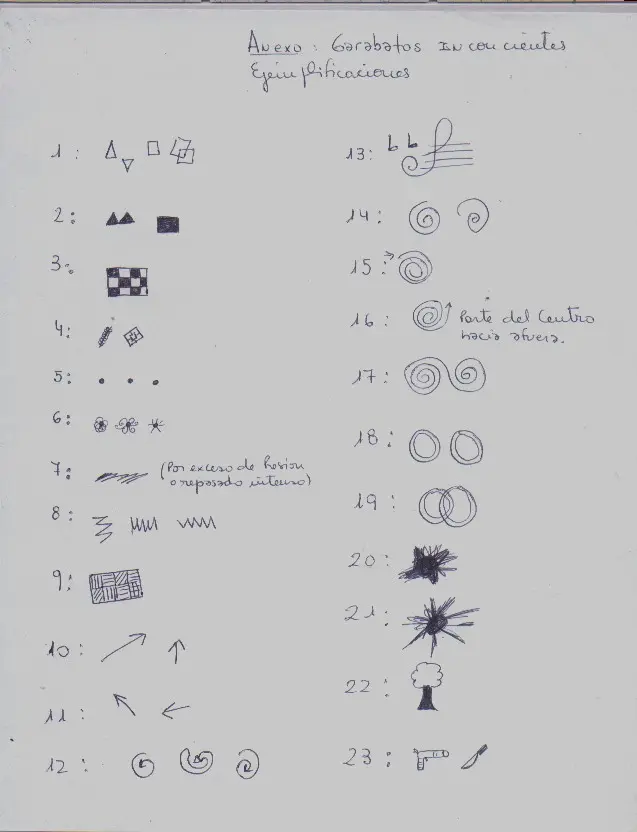 Anexo : Garabatos Inconcientes
Ejemplificaciones
1 :
2 :
3 :
4 :
5 :
6 :
7 : (Por exceso de Presion
o reposado intenso)
8 :
9 :
10 :
11 :
12 :
13 :
14 :
15 :
16 : Parte del Centro
hacia afuera.
17 :
18 :
19 :
20 :
21 :
22 :
23 :